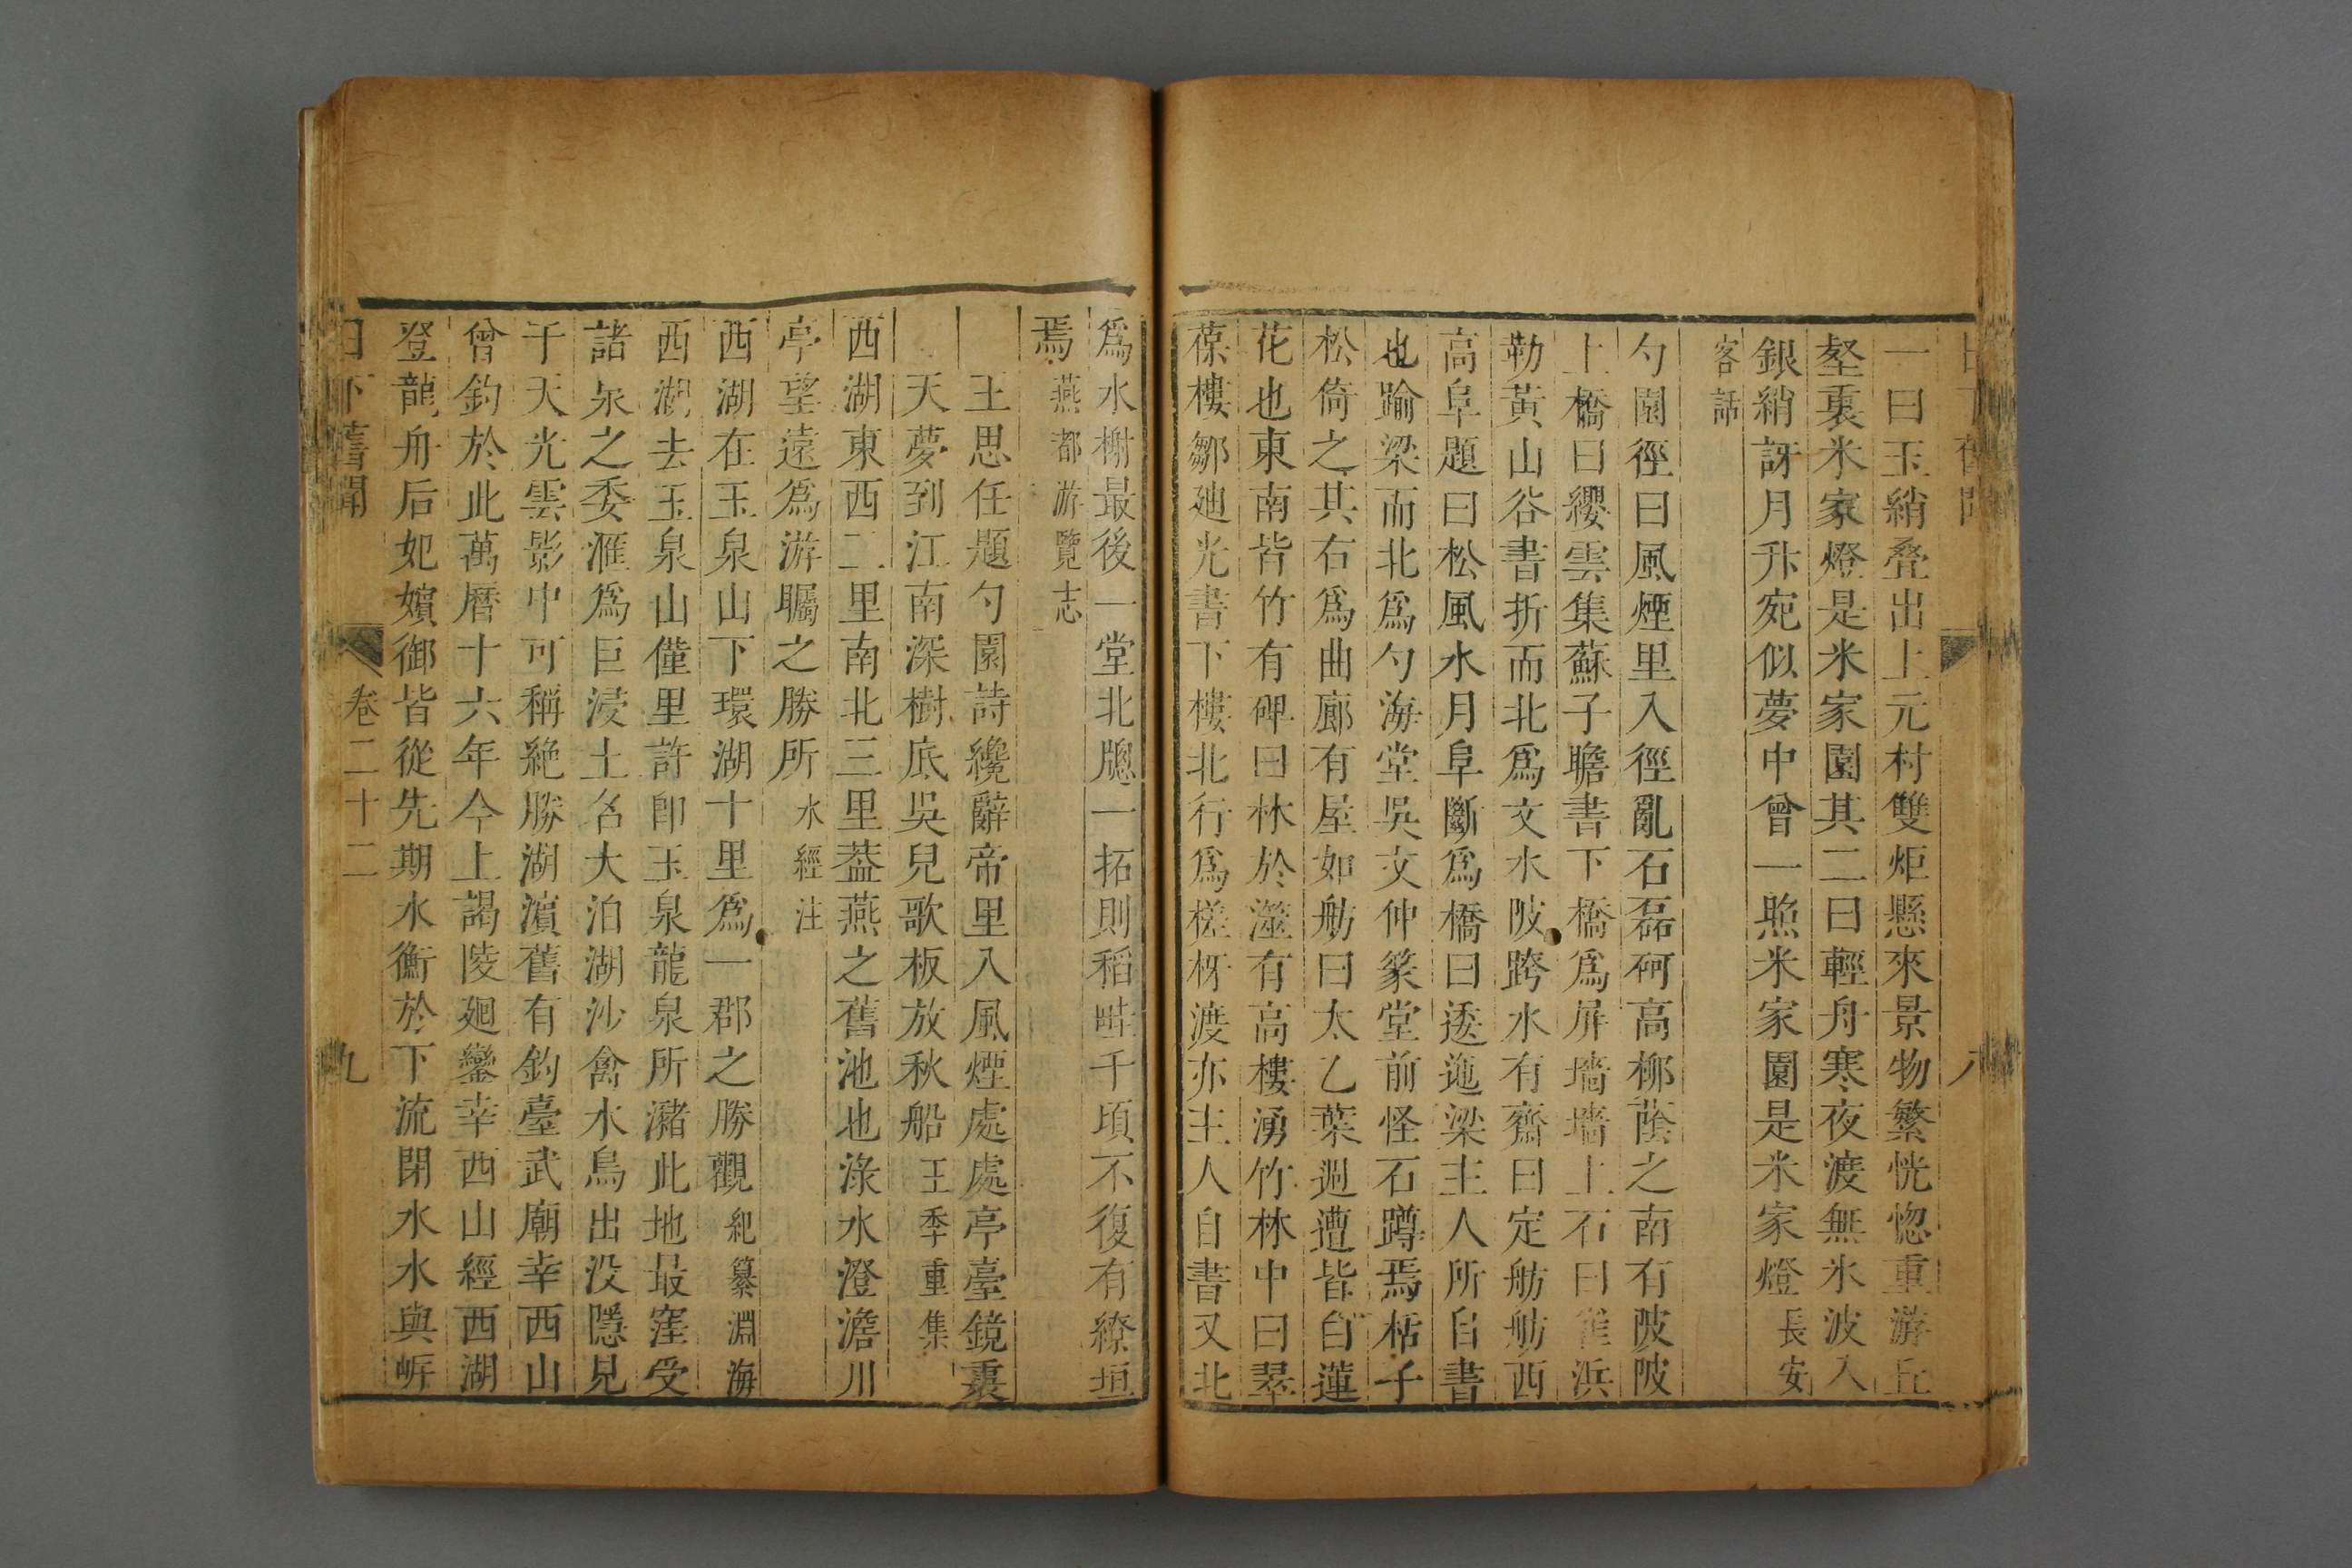 一曰玉綃叠出上元村雙炬懸來景物繁恍惚重游丘
壑裏米家燈是米家園其二曰輕舟寒夜渡無氷波入
銀綃訝月升宛似夢中曾一照米家園是米家燈長安
客話
勺園徑曰風煙里入徑亂石磊砢高柳蔭之南有陂陂
上橋曰纓雲集蘇子瞻書下橋爲屏墻墻上石曰雀浜
勒黃山谷書折而北爲文水陂跨水有齋曰定舫舫西
高阜題曰松風水月阜斷爲橋曰逶迤梁主人所自書
也踰梁而北爲勺海堂吳文仲篆堂前怪石蹲焉栝子
松倚之其右爲曲廊有屋如舫曰太乙葉過遭皆白蓮
花也東南皆竹有碑曰林於澨有高樓湧竹林中曰翠
葆樓鄒迪光書下樓北行爲槎枒渡亦主人自書又北
爲水榭最後一堂北牎一拓則稻畦千頃不復有繚垣
焉燕都游覽志
王思任題勺園詩纔辭帝里入風煙處處亭臺鏡裏
天夢到江南深樹底吳兒歌板放秋船王季重集
西湖東西二里南北三里葢燕之舊池也淥水澄澹川
亭望遠爲游矚之勝所水經注
西湖在玉泉山下環湖十里爲一郡之勝觀紀纂淵海
西湖去玉泉山僅里許卽玉泉龍泉所瀦此地最窪受
諸泉之委滙爲巨浸土名大泊湖沙禽水鳥出没隱見
于天光雲影中可稱絶勝湖濵舊有釣臺武廟幸西山
曾釣於此萬曆十六年今上謁陵廻鑾幸西山經西湖
登龍舟后妃嬪御皆從先期水衡於下流閉水水與㟁
日下舊聞 卷二十二 九